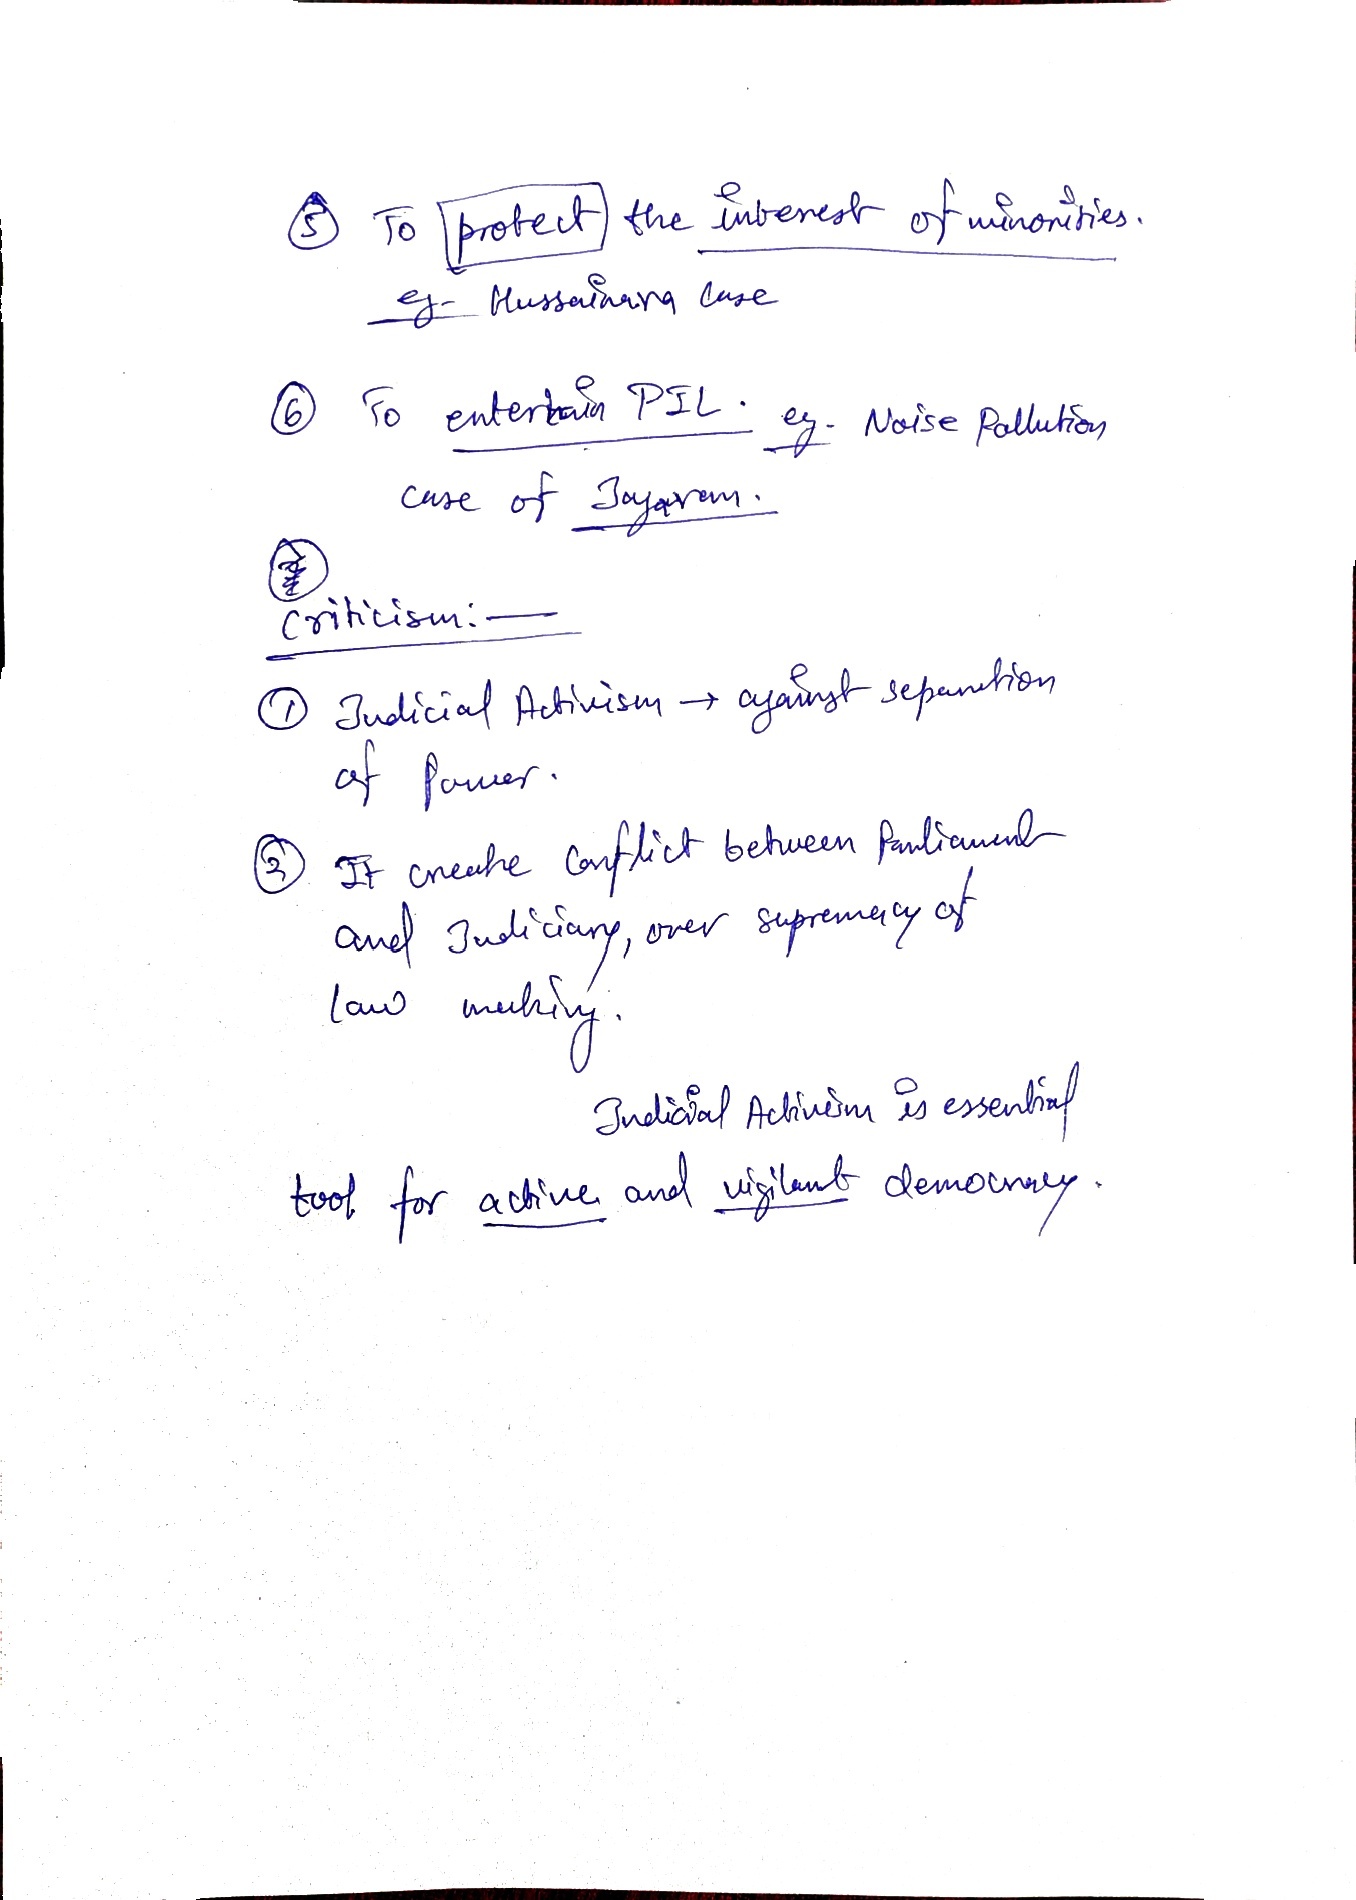 ⑤ To protect the interest of minorities.
eg- Hussainara Case
⑥ To entertain PIL. eg- Noise Pollution
case of Jayaram.
Criticism:—
① Judicial Activism → against separation
of Power.
② It create conflict between Parliament
and Judiciary, over supremacy of
law making.
Judicial Activism is essential
tool for active and vigilant democracy.